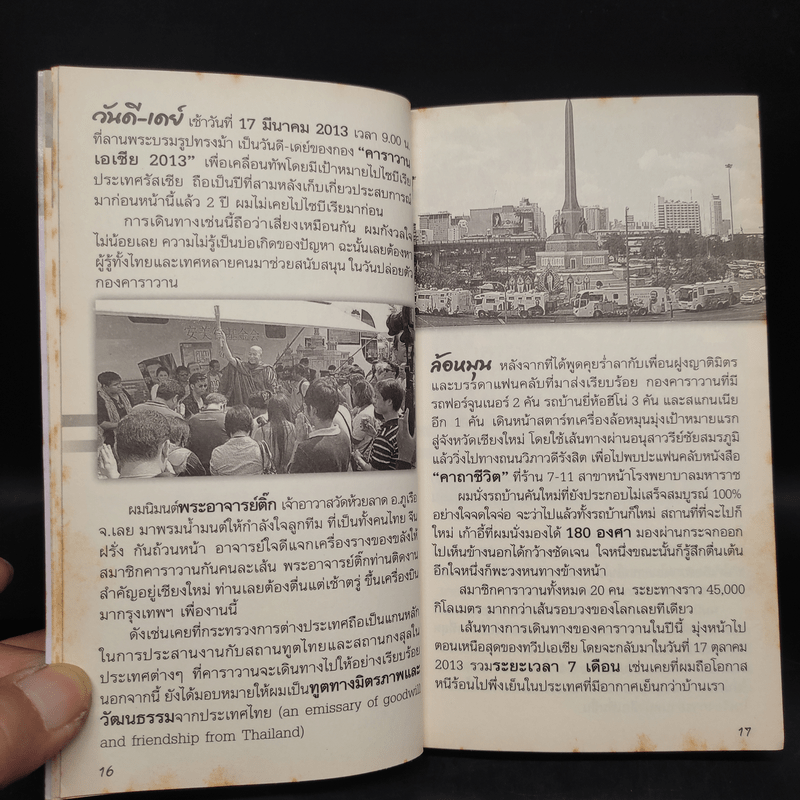 วันดี-เดย์ เช้าวันที่ 17 มีนาคม 2013 เวลา 9.00 น.
ที่ลานพระบรมรูปทรงม้า เป็นวันดี-เดย์ของกอง “คาราวาน
เอเชีย 2013” เพื่อเคลื่อนทัพโดยมีเป้าหมายไปไซบีเรีย
ประเทศรัสเซีย ถือเป็นปีที่สามหลังเก็บเกี่ยวประสบการณ์
มาก่อนหน้านี้แล้ว 2 ปี ผมไม่เคยไปไซบีเรียมาก่อน
การเดินทางเช่นนี้ถือว่าเสี่ยงเหมือนกัน ผมกังวลใจ
ไม่น้อยเลย ความไม่รู้เป็นบ่อเกิดของปัญหา ฉะนั้นเลยต้องหา
ผู้รู้ทั้งไทยและเทศหลายคนมาช่วยสนับสนุน ในวันปล่อยตัว
กองคาราวาน
ผมนิมนต์พระอาจารย์ติ๊ก เจ้าอาวาสวัดห้วยลาด อ.ภูเรือ
จ.เลย มาพรมน้ำมนต์ให้กำลังใจลูกทีม ที่เป็นทั้งคนไทย จีน
ฝรั่ง กันถ้วนหน้า อาจารย์ใจดีแจกเครื่องรางของขลังให้
สมาชิกคาราวานกันคนละเส้น พระอาจารย์ติ๊กท่านติดงาน
สำคัญอยู่เชียงใหม่ ท่านเลยต้องตื่นแต่เช้าตรู่ ขึ้นเครื่องบิน
มากรุงเทพฯ เพื่องานนี้
ดังเช่นเคยที่กระทรวงการต่างประเทศถือเป็นแกนหลัก
ในการประสานงานกับสถานทูตไทยและสถานกงสุลใน
ประเทศต่างๆ ที่คาราวานจะเดินทางไปให้อย่างเรียบร้อย
นอกจากนี้ ยังได้มอบหมายให้ผมเป็นทูตทางมิตรภาพและ
วัฒนธรรมจากประเทศไทย (an emissary of goodwill
and friendship from Thailand)
16
ล้อหมุน หลังจากที่ได้พูดคุยร่ำลากับเพื่อนฝูงญาติมิตร
และบรรดาแฟนคลับที่มาส่งเรียบร้อย กองคาราวานที่มี
รถฟอร์จูนเนอร์ 2 คัน รถบ้านยี่ห้อฮีโน่ 3 คัน และสแกนเนีย
อีก 1 คัน เดินหน้าสตาร์ทเครื่องล้อหมุนมุ่งเป้าหมายแรก
สู่จังหวัดเชียงใหม่ โดยใช้เส้นทางผ่านอนุสาวรีย์ชัยสมรภูมิ
แล้ววิ่งไปทางถนนวิภาวดีรังสิต เพื่อไปพบปะแฟนคลับหนังสือ
“คาถาชีวิต” ที่ร้าน 7-11 สาขาหน้าโรงพยาบาลมหาราช
ผมนั่งรถบ้านคันใหม่ที่ยังประกอบไม่เสร็จสมบูรณ์ 100%
อย่างใจจดใจจ่อ จะว่าไปแล้วทั้งรถบ้านก็ใหม่ สถานที่ที่จะไปก็
ใหม่ เก้าอี้ที่ผมนั่งมองได้ 180 องศา มองผ่านกระจกออก
ไปเห็นข้างนอกได้กว้างชัดเจน ใจหนึ่งขณะนั้นก็รู้สึกตื่นเต้น
อีกใจหนึ่งก็พะวงหนทางข้างหน้า
สมาชิกคาราวานทั้งหมด 20 คน ระยะทางราว 45,000
กิโลเมตร มากกว่าเส้นรอบวงของโลกเลยทีเดียว
เส้นทางการเดินทางของคาราวานในปีนี้ มุ่งหน้าไป
ตอนเหนือสุดของทวีปเอเชีย โดยจะกลับมาในวันที่ 17 ตุลาคม
2013 รวมระยะเวลา 7 เดือน เช่นเคยที่ผมถือโอกาส
หนีร้อนไปพึ่งเย็นในประเทศที่มีอากาศเย็นกว่าบ้านเรา
17